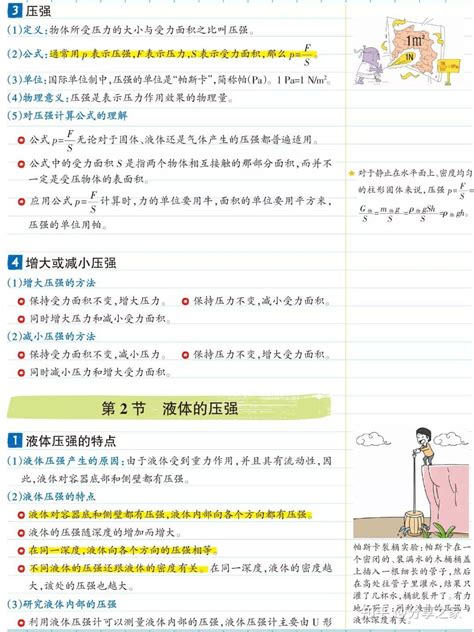 3 压强
(1)定义:物体所受压力的大小与受力面积之比叫压强。
(2)公式:通常用p表示压强,F表示压力,S表示受力面积,那么p=F/S
(3)单位:国际单位制中,压强的单位是“帕斯卡”,简称帕(Pa)。1 Pa=1 N/m²。
(4)物理意义:压强是表示压力作用效果的物理量。
(5)对压强计算公式的理解
公式p=F/S无论对于固体、液体还是气体产生的压强都普遍适用。
公式中的受力面积S是指两个物体相互接触的那部分面积,而并不
一定是受压物体的表面积。
应用公式p=F/S计算时,力的单位要用牛,面积的单位要用平方米,
压强的单位用帕。
1m²
1N
★ 对于静止在水平面上、密度均匀
的柱形固体来说,压强p=F/S=
G物/S=m物g/S=ρ物gSh/S=ρ物gh。
4 增大或减小压强
(1)增大压强的方法
保持受力面积不变,增大压力。 保持压力不变,减小受力面积。
同时增大压力和减小受力面积。
(2)减小压强的方法
保持受力面积不变,减小压力。 保持压力不变,增大受力面积。
同时减小压力和增大受力面积。
第2节 液体的压强
1 液体压强的特点
(1)液体压强产生的原因:由于液体受到重力作用,并且具有流动性,因
此,液体对容器底部和侧壁都有压强。
(2)液体压强的特点
液体对容器底和侧壁都有压强,液体内部向各个方向都有压强。
液体的压强随深度的增加而增大。
在同一深度,液体向各个方向的压强相等。
不同液体的压强还跟液体的密度有关。在同一深度,液体的密度越
大,该处的压强也越大。
(3)研究液体内部的压强
利用液体压强计可以测量液体内部的压强,液体压强计主要由U形
帕斯卡裂桶实验:帕斯卡在一
个密闭的、装满水的木桶桶盖
上插入一根细长的管子,然后
在高处往管子里灌水,结果只
灌了几杯水,桶就裂开了。有力
液体深度有关。